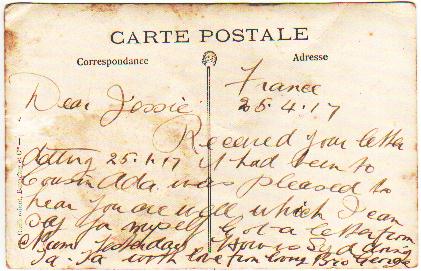 CARTE POSTALE
Correspondance
Adresse
France
25.4.17
Dear Jessie
Received your letter
dating 25.1.17 it had been to
Cousin Ada. was pleased to
hear you are well which I can
say for myself Got a letter from
Mum Yesterday How is Syd doing
Ta-Ta with love from loving Bro George